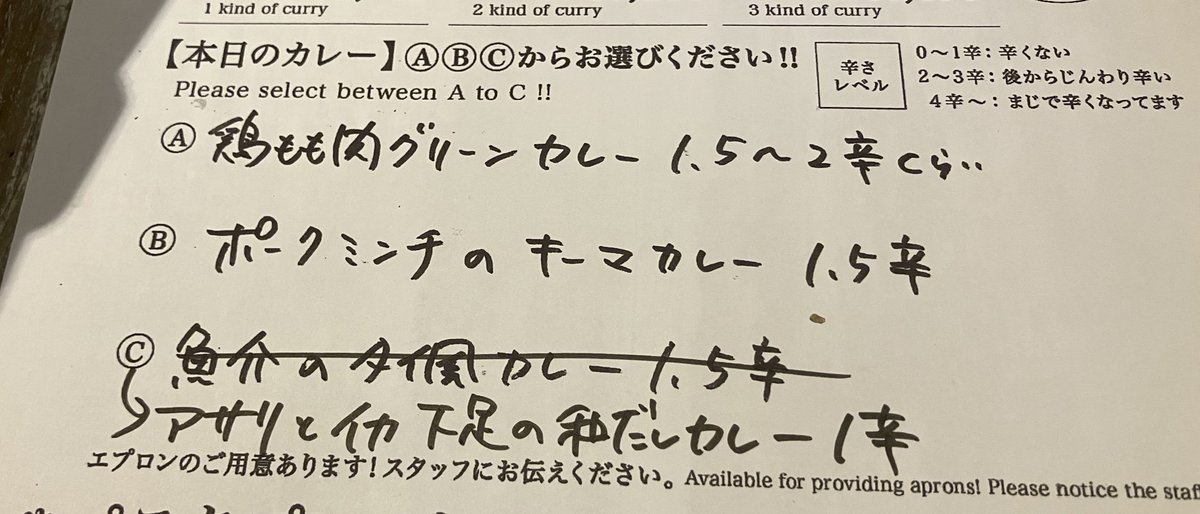 1 kind of curry 2 kind of curry 3 kind of curry
【本日のカレー】ⒶⒷⒸからお選びください!!
Please select between A to C !!
辛さ
レベル
0〜1辛：辛くない
2〜3辛：後からじんわり辛い
4辛〜：まじで辛くなってます
Ⓐ 鶏もも肉グリーンカレー 1.5〜2辛くらい
Ⓑ ポークミンチのキーマカレー 1.5辛
Ⓒ 魚介のタイ風カレー 1.5辛
アサリとイカ下足の和だしカレー 1辛
エプロンのご用意あります!スタッフにお伝えください。Available for providing aprons! Please notice the staf